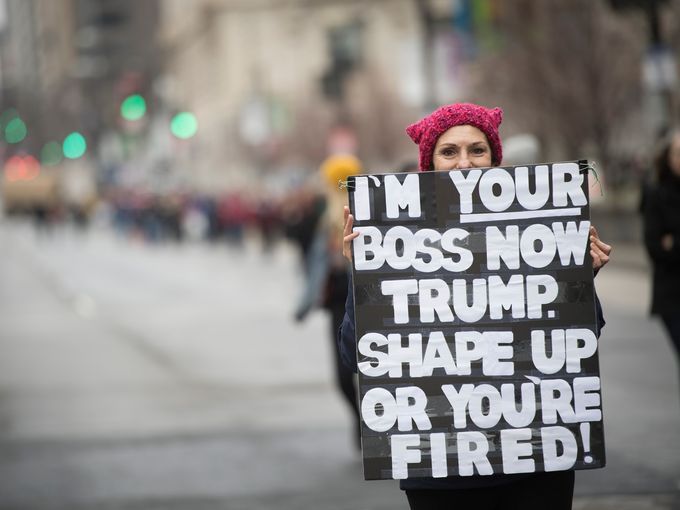 I'M YOUR
BOSS NOW
TRUMP.
SHAPE UP
OR YOU'RE
FIRED!